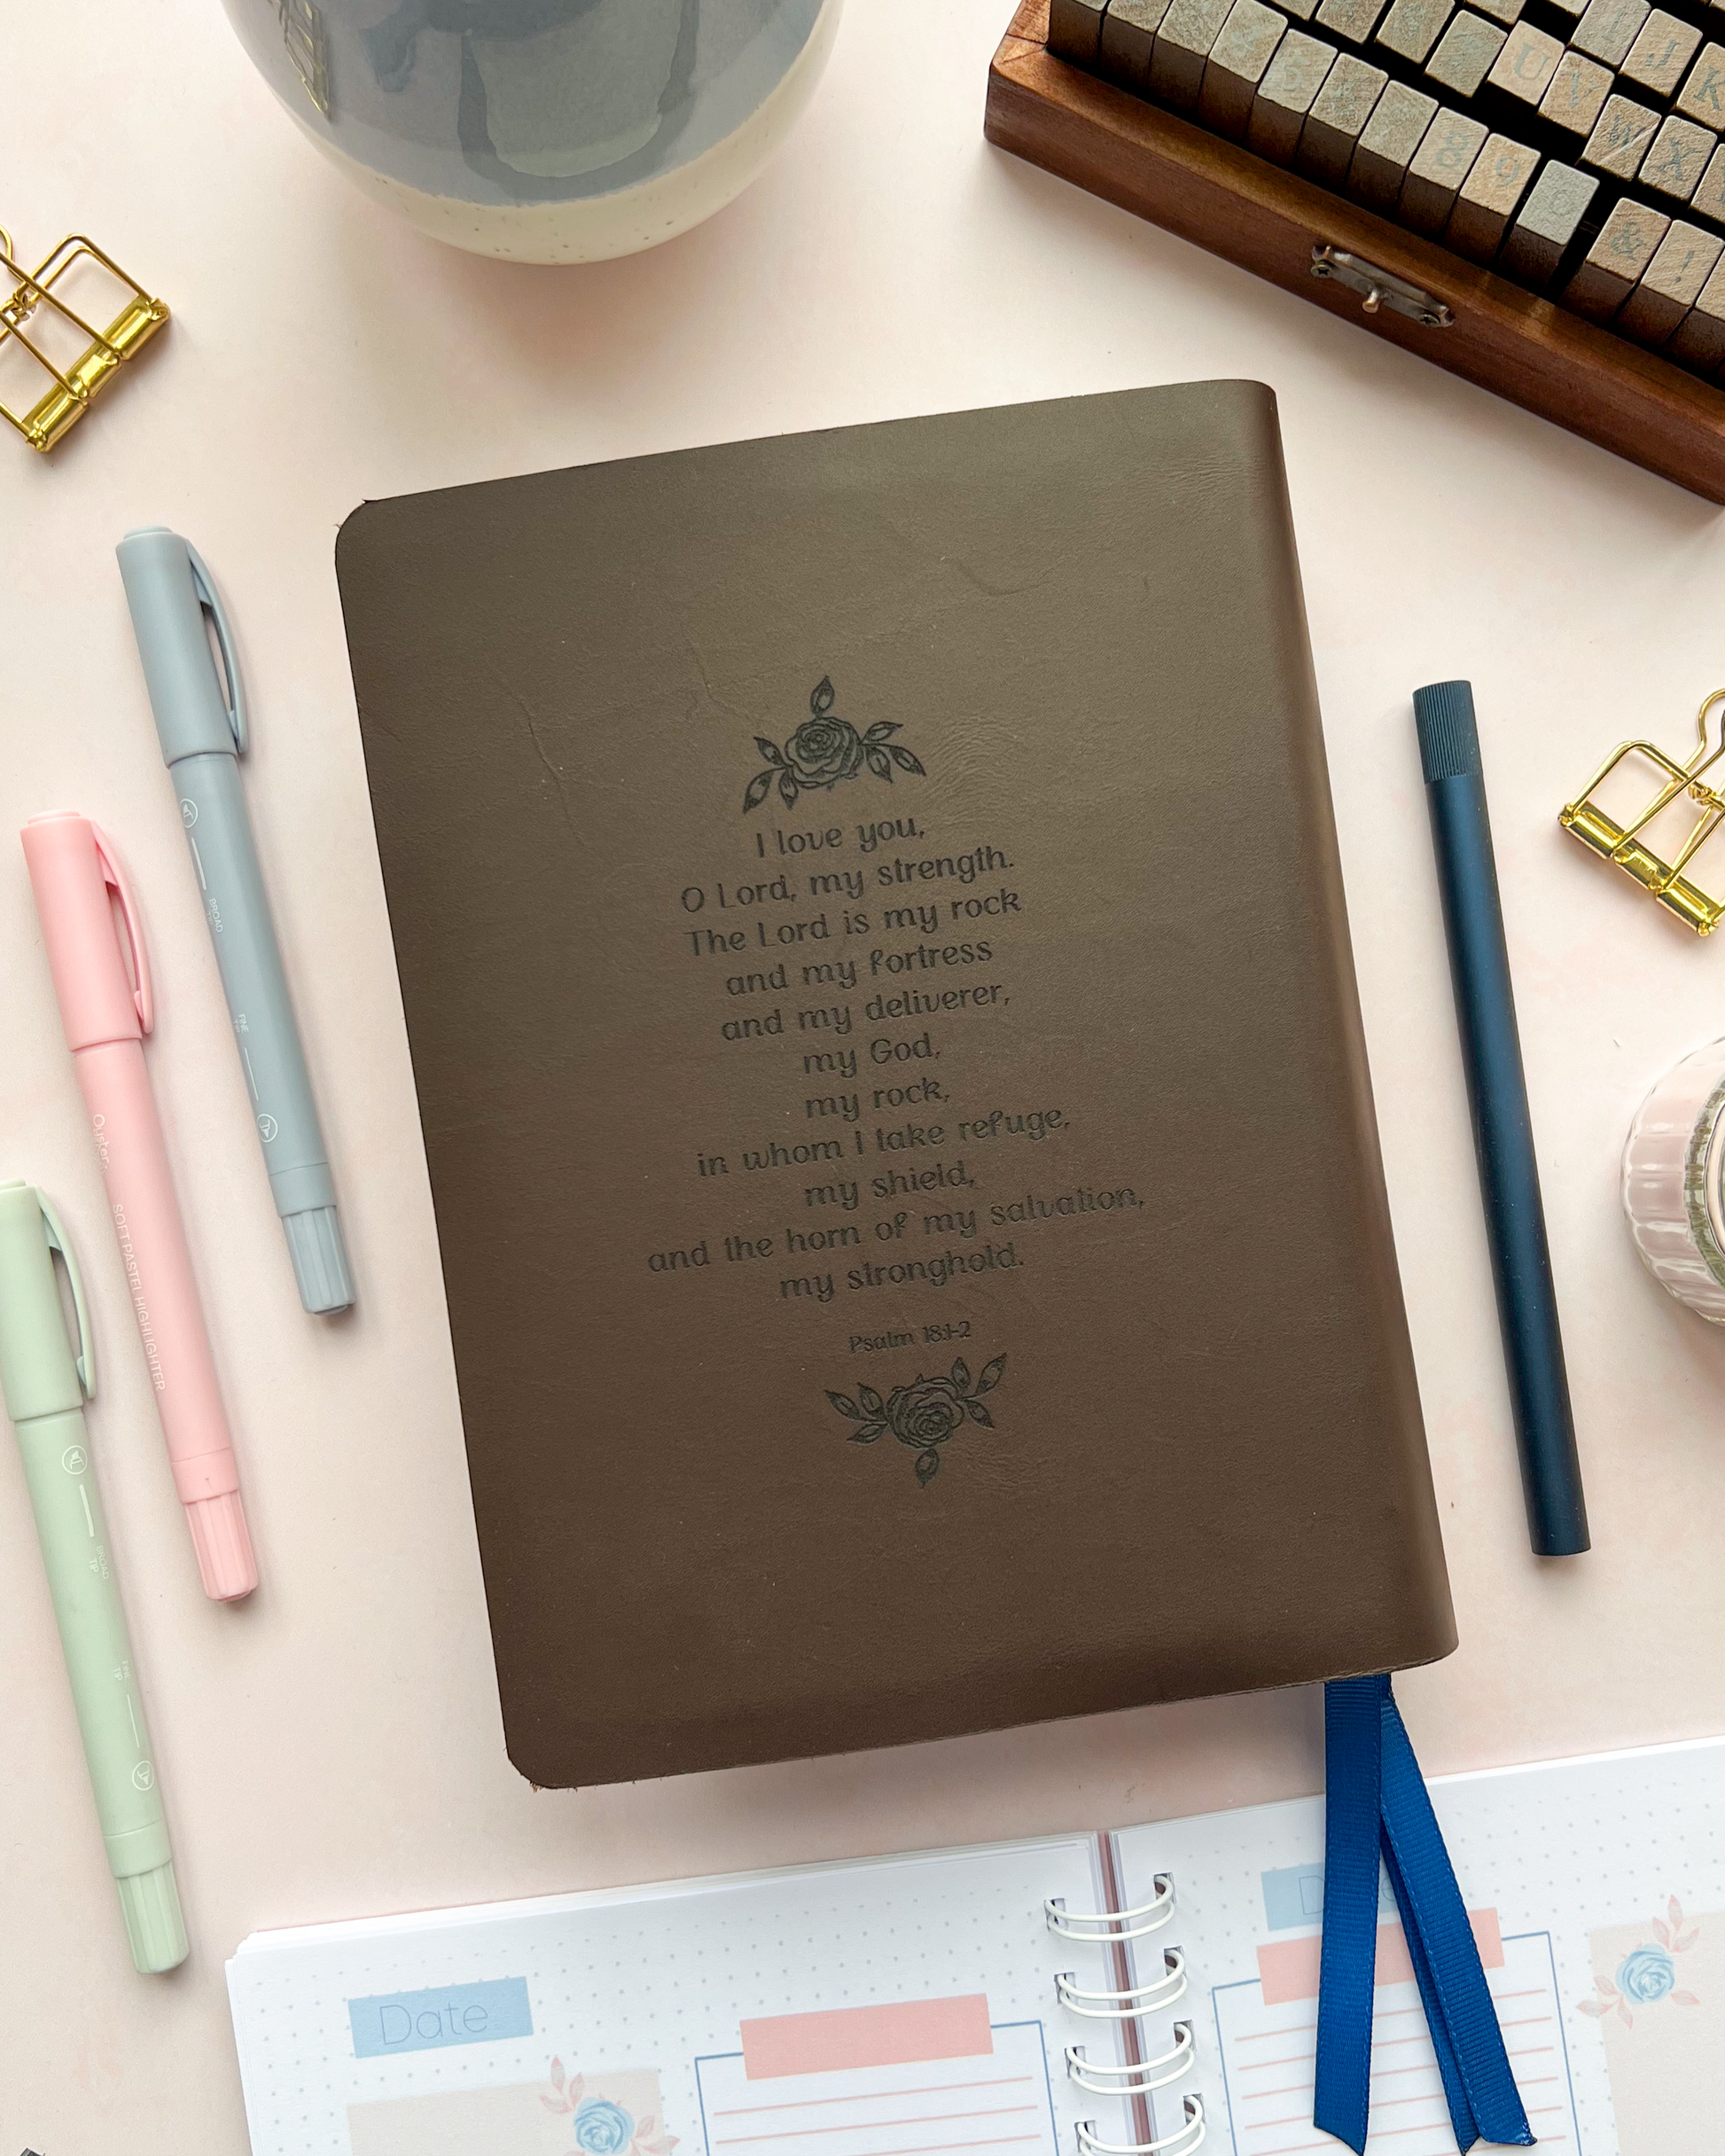 I love you,
O Lord, my strength.
The Lord is my rock
and my fortress
and my deliverer,
my God,
my rock,
in whom I take refuge,
my shield,
and the horn of my salvation,
my stronghold.
Psalm 18:1-2
BROAD
FINE
Oyster
SOFT PASTEL HIGHLIGHTER
BROAD
TIP
FINE
TIP
U V J K
8 9 W X
& !
Date